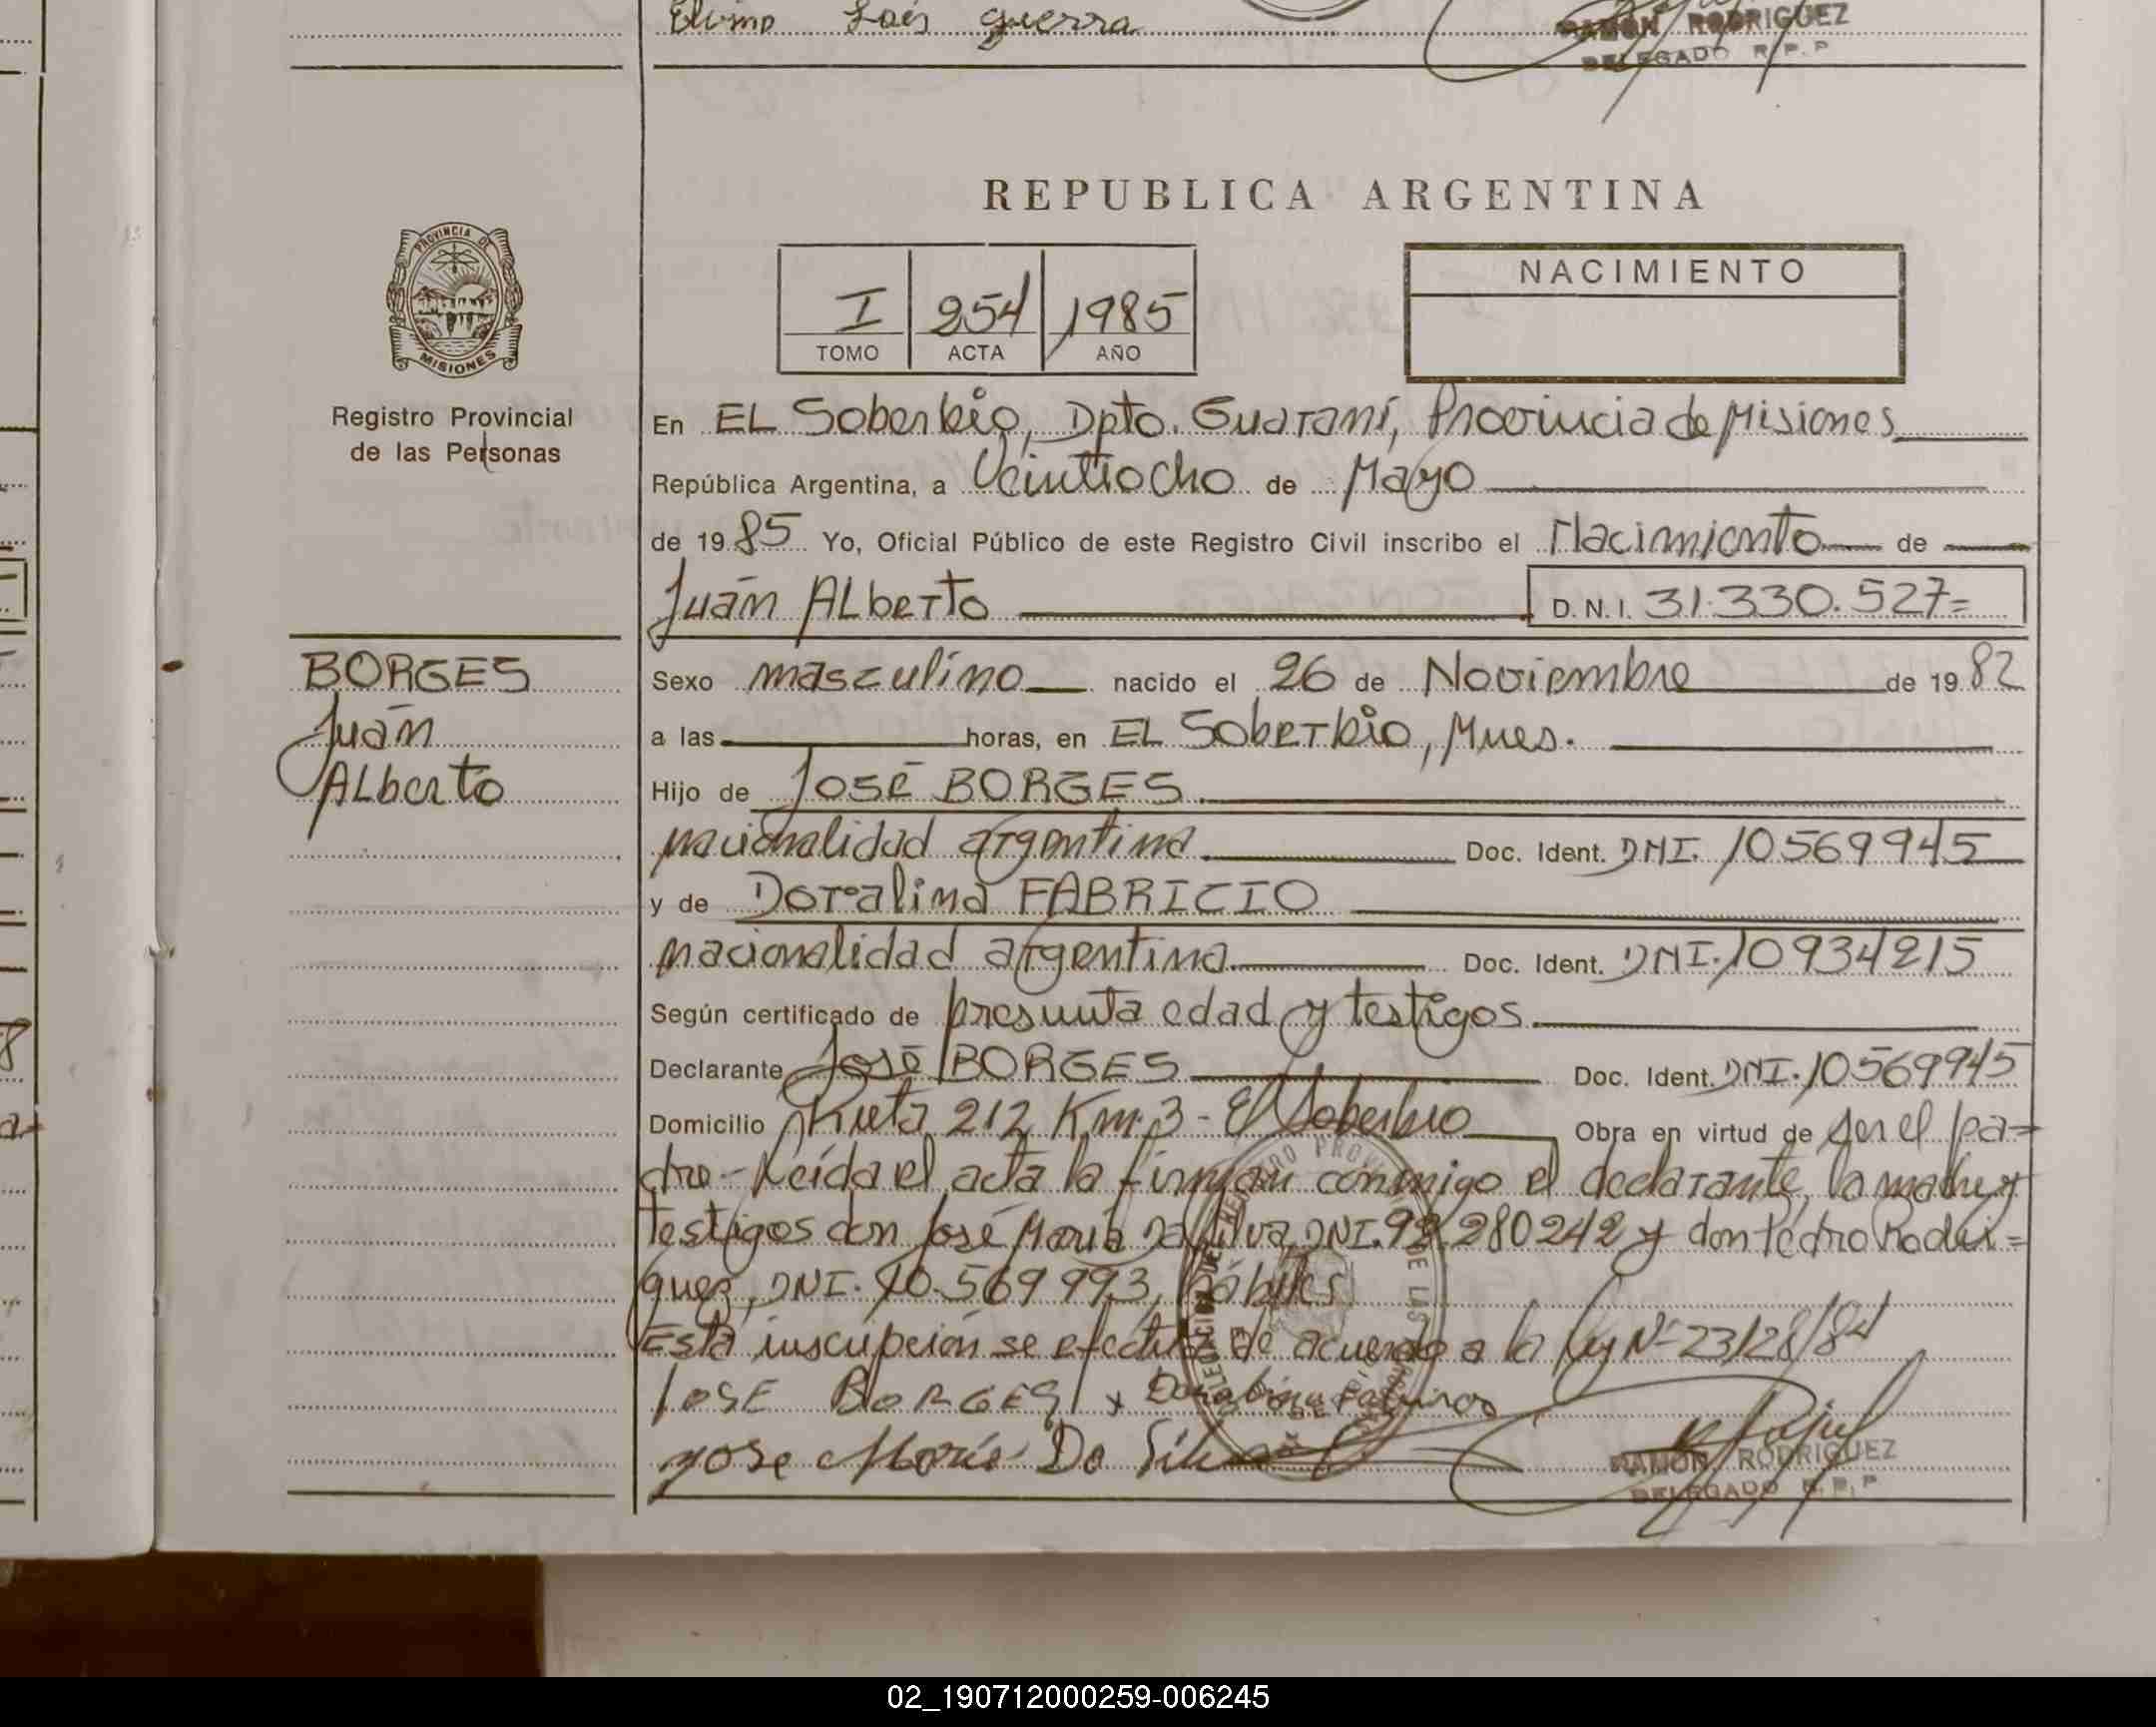 Elvino Laéz Guerra
RAMON RODRIGUEZ
DELEGADO R.P.P
REPUBLICA ARGENTINA
PROVINCIA DE
MISIONES
Registro Provincial
de las Personas
I 254 1985
TOMO ACTA AÑO
NACIMIENTO
En EL Soberbio, Dpto. Guaraní, Provincia de Misiones
República Argentina, a Veintiocho de Mayo
de 1985 Yo, Oficial Público de este Registro Civil inscribo el Nacimiento de
Juán ALberto D.N.I. 31.330.527=
BORGES
Juán
ALberto
Sexo masculino nacido el 26 de Noviembre de 1982
a las horas, en EL Soberbio, Mnes.
Hijo de José BORGES
nacionalidad argentina Doc. Ident. DNI. 10569945
y de Doralina FABRICIO
nacionalidad argentina. Doc. Ident. DNI. 10934215
Según certificado de presunta edad y testigos
Declarante José BORGES Doc. Ident. DNI. 10569945
Domicilio Ruta 212 Km. 3 - El Soberbio Obra en virtud de ser el pa=
dre - Leída el acta la firman conmigo el declarante, la madre y
testigos don José María Da Silva DNI. 92.280242 y don Pedro Rodri=
guez, DNI. 10.569993, hábiles
Esta inscripción se efectúa de acuerdo a la ley Nº 23128/84
JOSE BORGES x
Jose María Da Silva
RAMON RODRIGUEZ
DELEGADO R.P.P
02_190712000259-006245